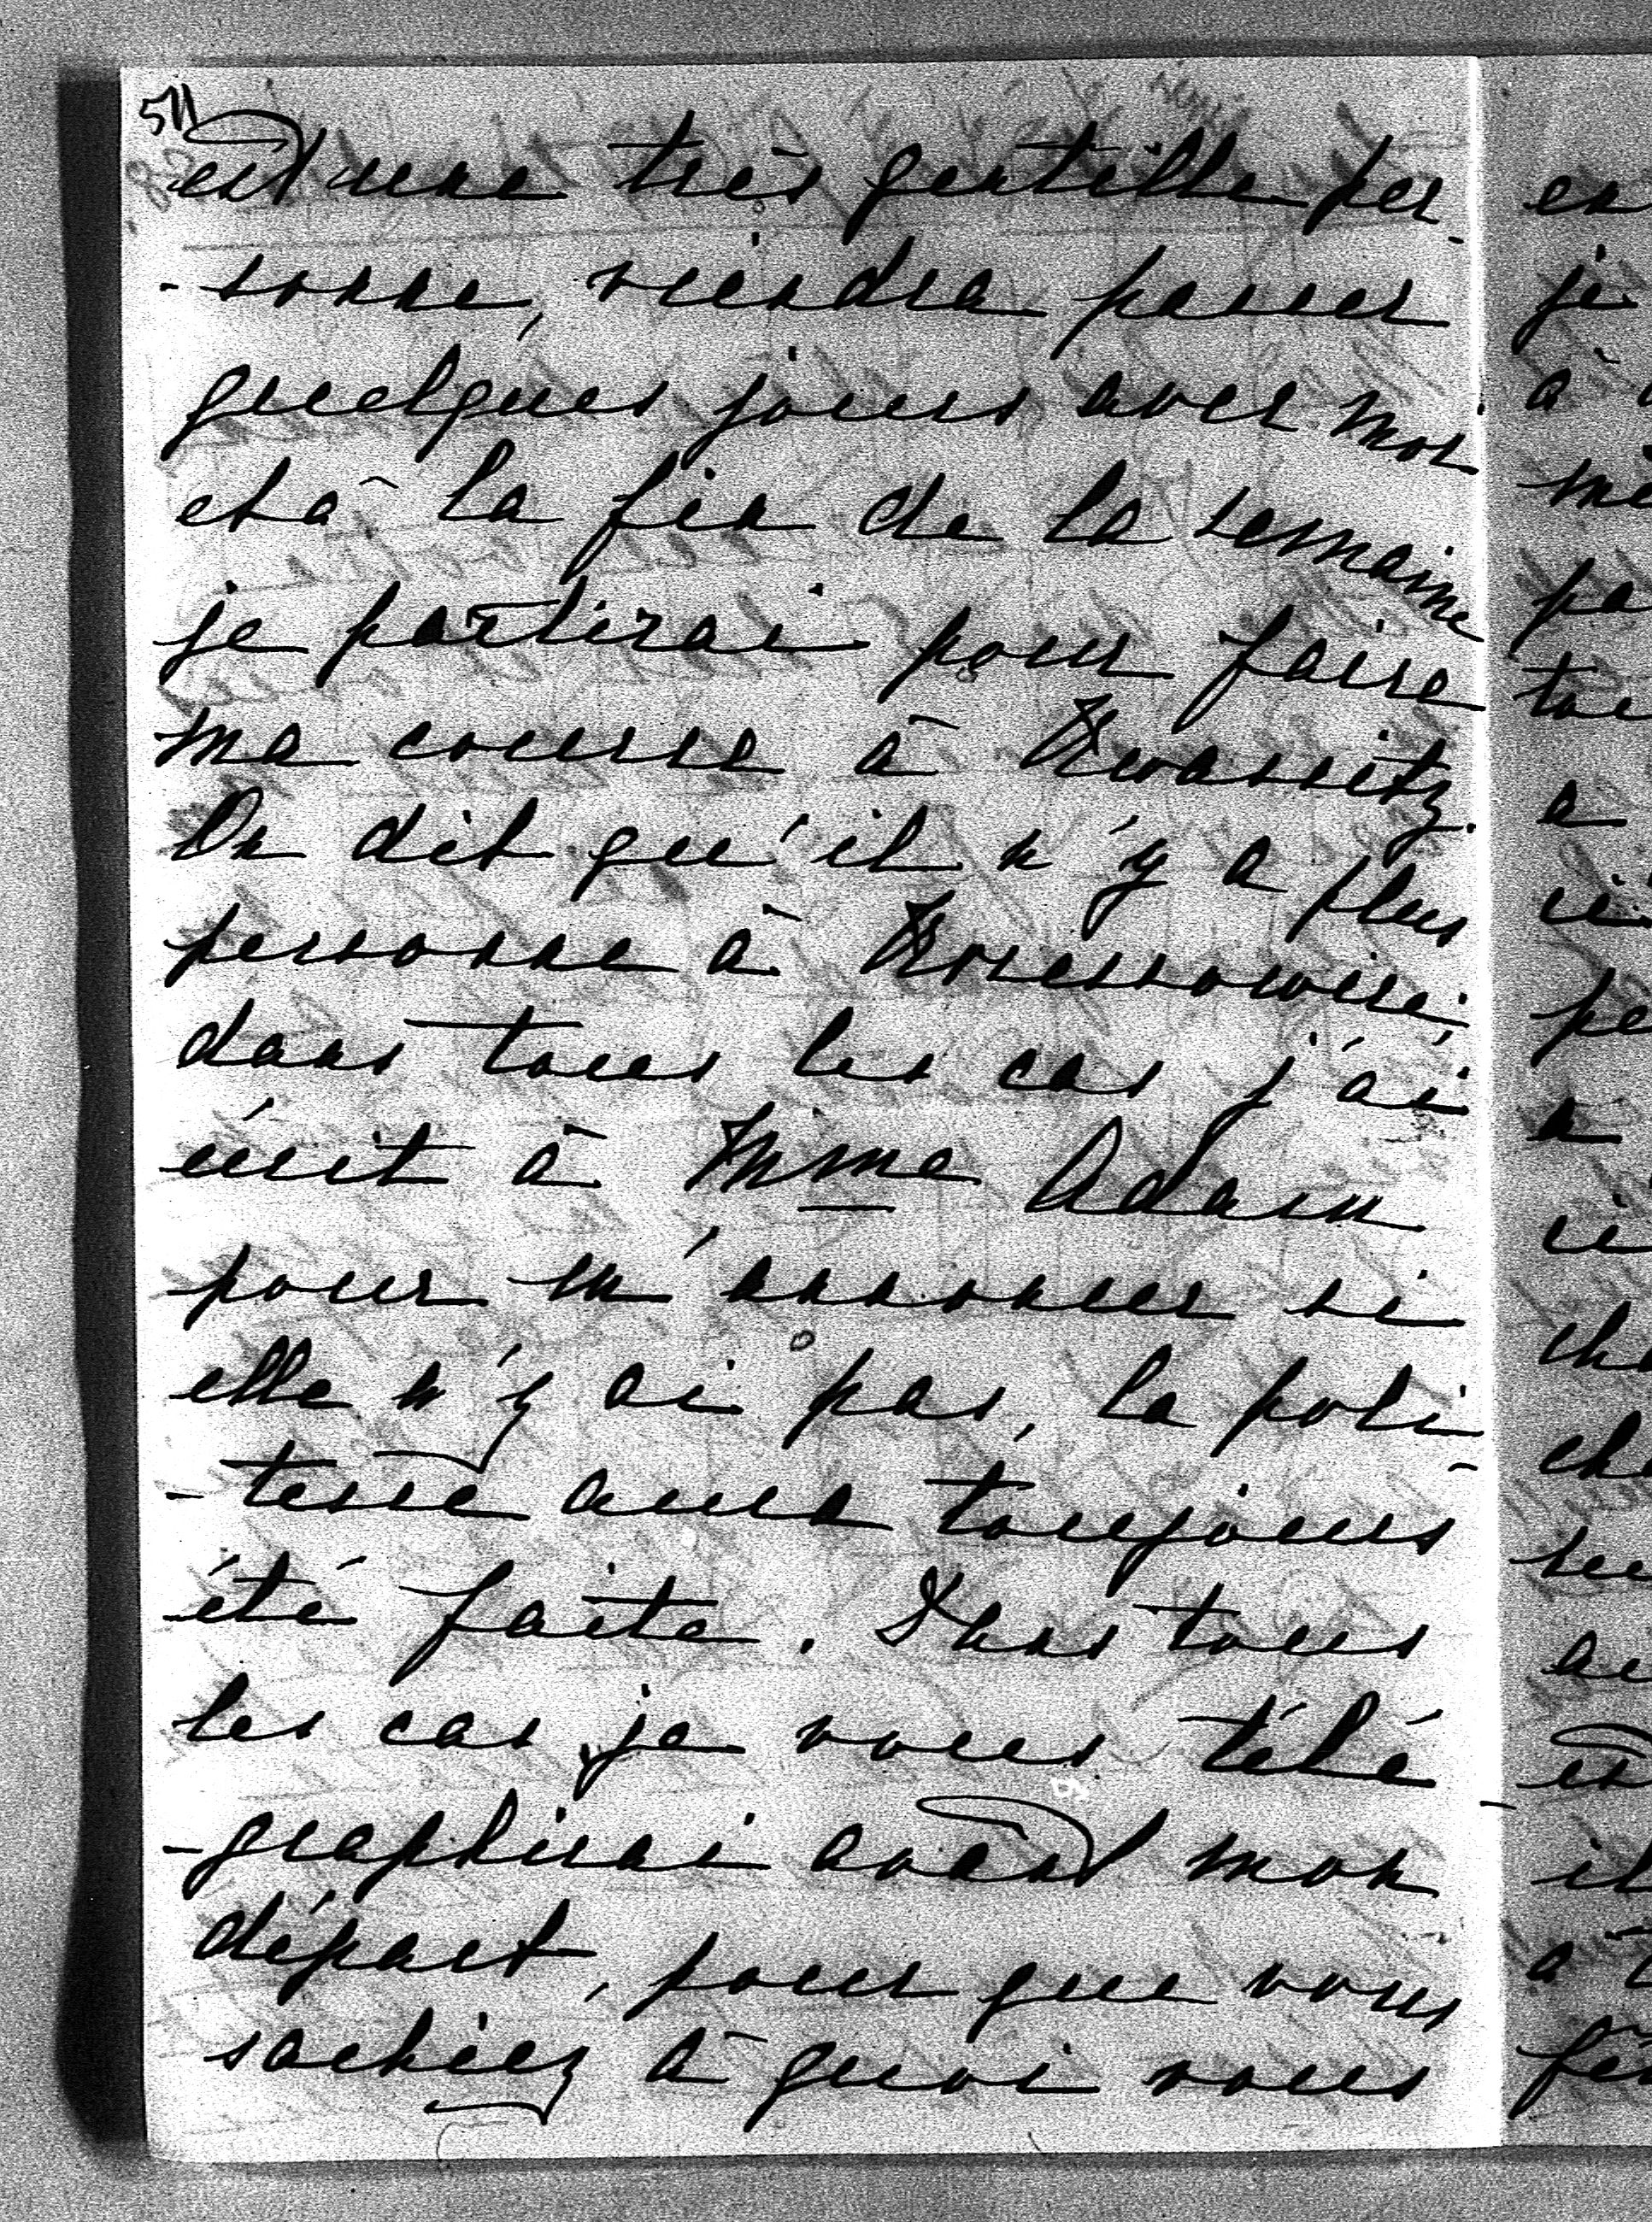 511
est une très gentille per
-sonne, viendra passer
quelques jours avec moi
et à la fin de la semaine
je partirai pour faire
ma course à Kwassitz.
On dit qu'il n'y a plus
personne à
dans tous les cas j'ai
écrit à Mme Adam
pour m'annoncer si
elle n'y ai pas, la poli
-tesse aura toujours
été faite. Dans tous
les cas je vous télé
-graphirai avant mon
départ, pour que vous
sachiez à quoi vous